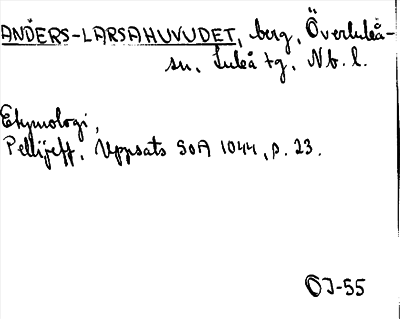 ANDERS-LARSAHUVUDET, berg, Överluleå-
sn, Luleå tg, Nb. l.
Etymologi,
Pellijeff, Uppsats SOA 1044, p. 23.
ÖJ-55